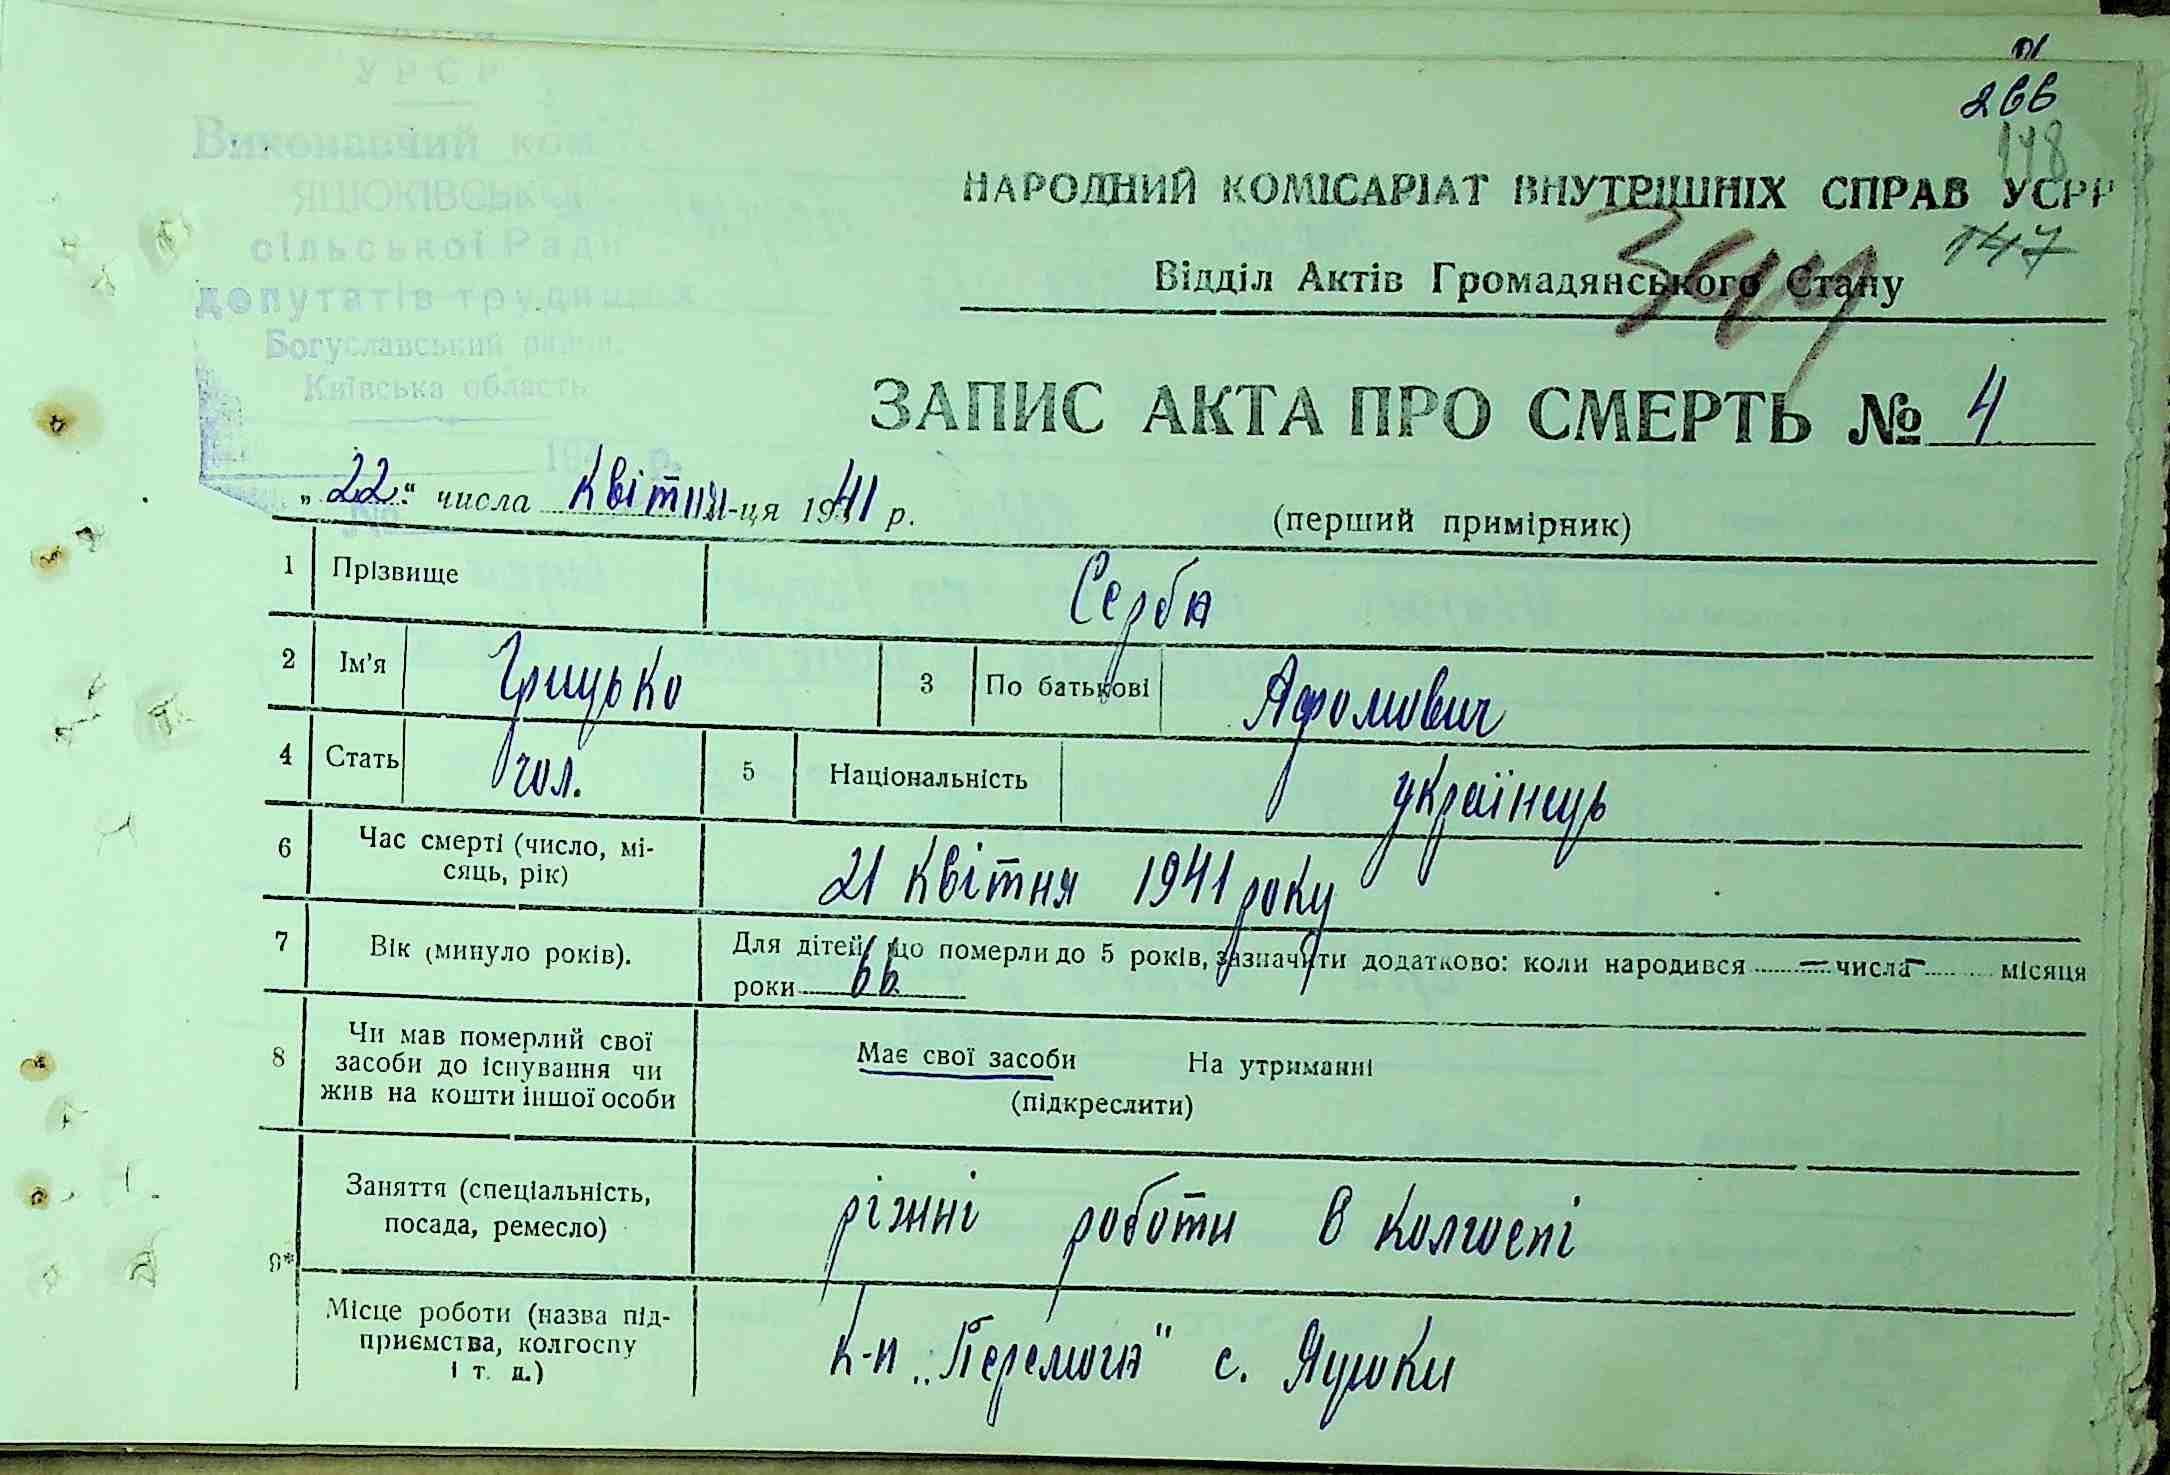 УРСР
Виконавчий
ЯЦЮКІВСЬКОЇ
сільської Ради
депутатів трудящих
Богуславський район
Київська область
266
118
НАРОДНИЙ КОМІСАРІАТ ВНУТРІШНІХ СПРАВ УСРР
147
Відділ Актів Громадянського Стану
ЗАПИС АКТА ПРО СМЕРТЬ № 4
„22“ числа квітня м-ця 1941 р. (перший примірник)
1 Прізвище Серба
2 Ім'я Грицько 3 По батькові Афомович
4 Стать чол. 5 Національність українець
6 Час смерті (число, мі-
сяць, рік) 21 квітня 1941 року
7 Вік (минуло років). Для дітей, що померли до 5 років, зазначити додатково: коли народився — числа — місяця
роки 66
8 Чи мав померлий свої
засоби до існування чи
жив на кошти іншої особи
Має свої засоби На утриманні
(підкреслити)
9* Заняття (спеціальність,
посада, ремесло) ріжні роботи в колгоспі
Місце роботи (назва під-
приємства, колгоспу
і т. д.) к-п „Перемога" с. Яцюки